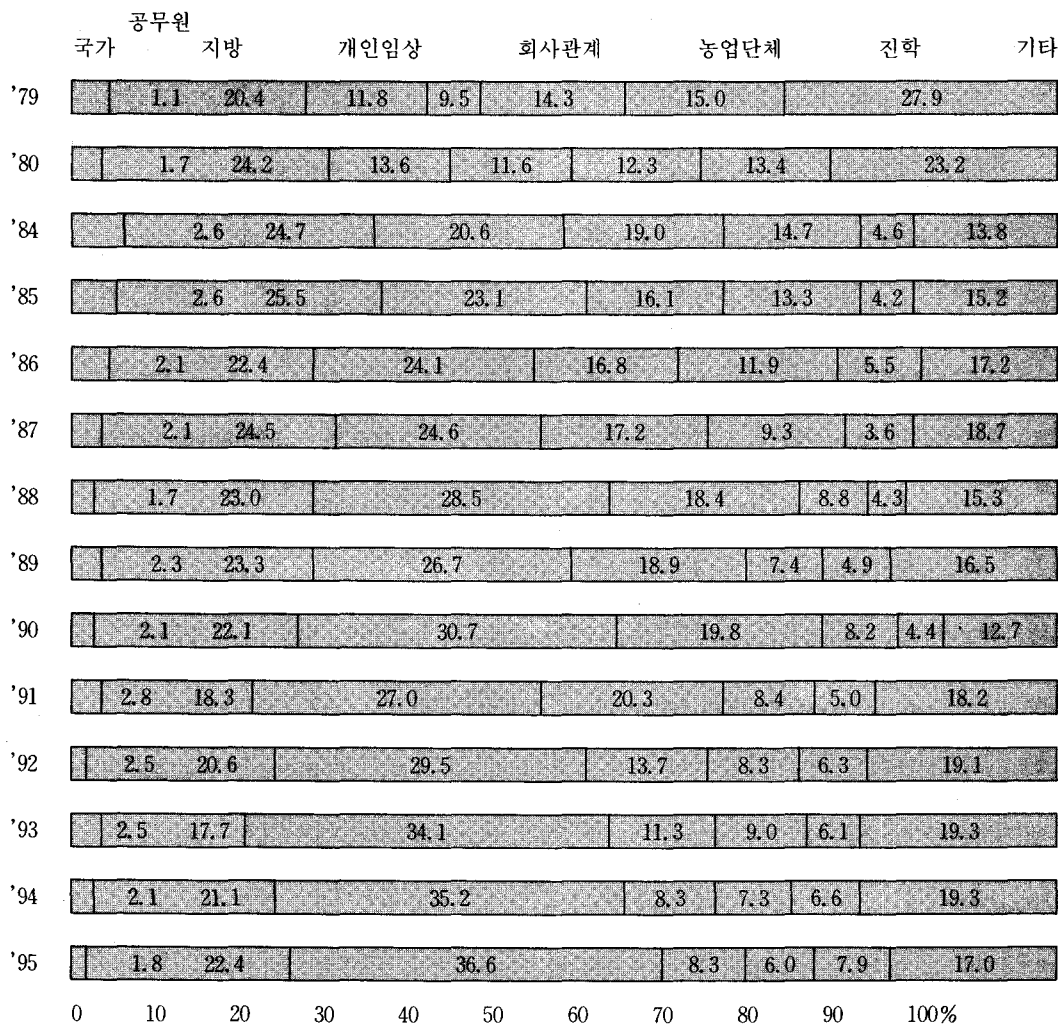 공무원
국가 지방 개인임상 회사관계 농업단체 진학 기타
'79 1.1 20.4 11.8 9.5 14.3 15.0 27.9
'80 1.7 24.2 13.6 11.6 12.3 13.4 23.2
'84 2.6 24.7 20.6 19.0 14.7 4.6 13.8
'85 2.6 25.5 23.1 16.1 13.3 4.2 15.2
'86 2.1 22.4 24.1 16.8 11.9 5.5 17.2
'87 2.1 24.5 24.6 17.2 9.3 3.6 18.7
'88 1.7 23.0 28.5 18.4 8.8 4.3 15.3
'89 2.3 23.3 26.7 18.9 7.4 4.9 16.5
'90 2.1 22.1 30.7 19.8 8.2 4.4 12.7
'91 2.8 18.3 27.0 20.3 8.4 5.0 18.2
'92 2.5 20.6 29.5 13.7 8.3 6.3 19.1
'93 2.5 17.7 34.1 11.3 9.0 6.1 19.3
'94 2.1 21.1 35.2 8.3 7.3 6.6 19.3
'95 1.8 22.4 36.6 8.3 6.0 7.9 17.0
0 10 20 30 40 50 60 70 80 90 100%